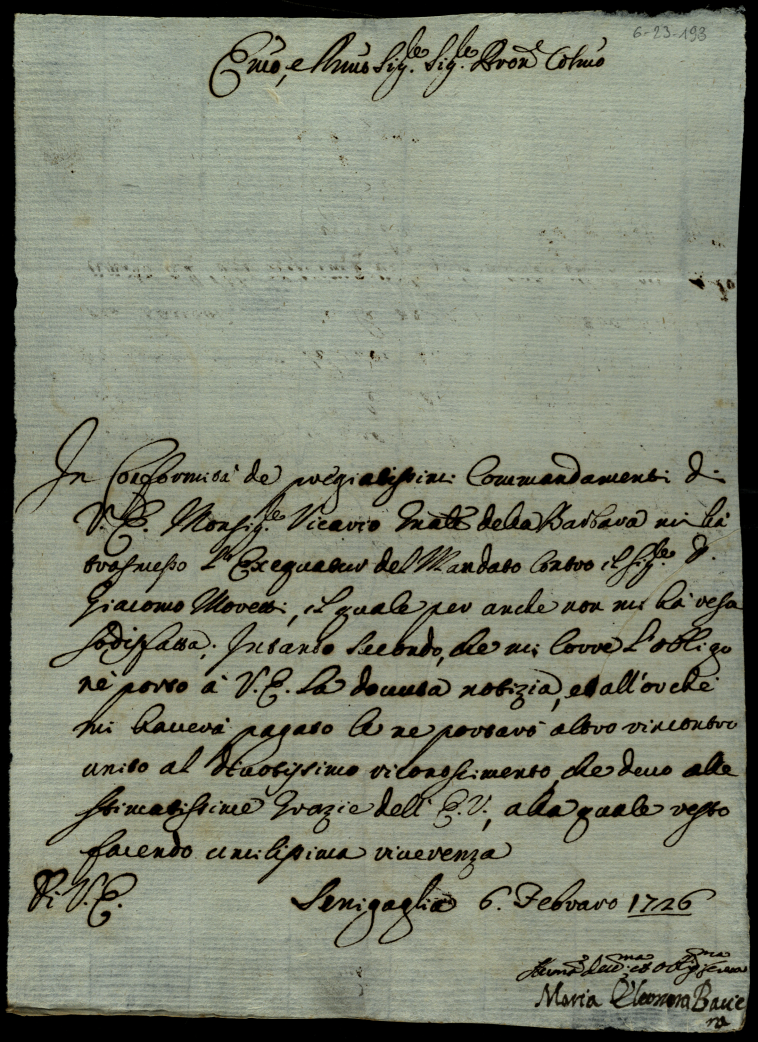 6-23-193
Em̃o, e Rm̃o Sig.re Sig.re Pron. Colm̃o
In Conformità de pregiatissimi Commandamenti di
V. E. Monsig.re Vicario Gnãle della Barbara mi hà
trasmesso l'Exequatur del Mandato Contro il Sig.re D.
Giacomo Moretti, il quale per anche non mi hà resa
sodisfatta; Intanto secondo, che mi corre l'obligo
nè porto à V. E. la douuta notizia, et all'or che
mi hauerà pagato le ne portarò altro rincontro
unito al diuotissimo riconoscimento, che deuo alle
stimatissime Grazie dell'E. V., alla quale resto
facendo umilissima riuerenza
Di V. E. Senigaglia 6. Febraro 1726
Hum.a deu.ma et obblig.ma serua
Maria Eleonora Bauie
ra